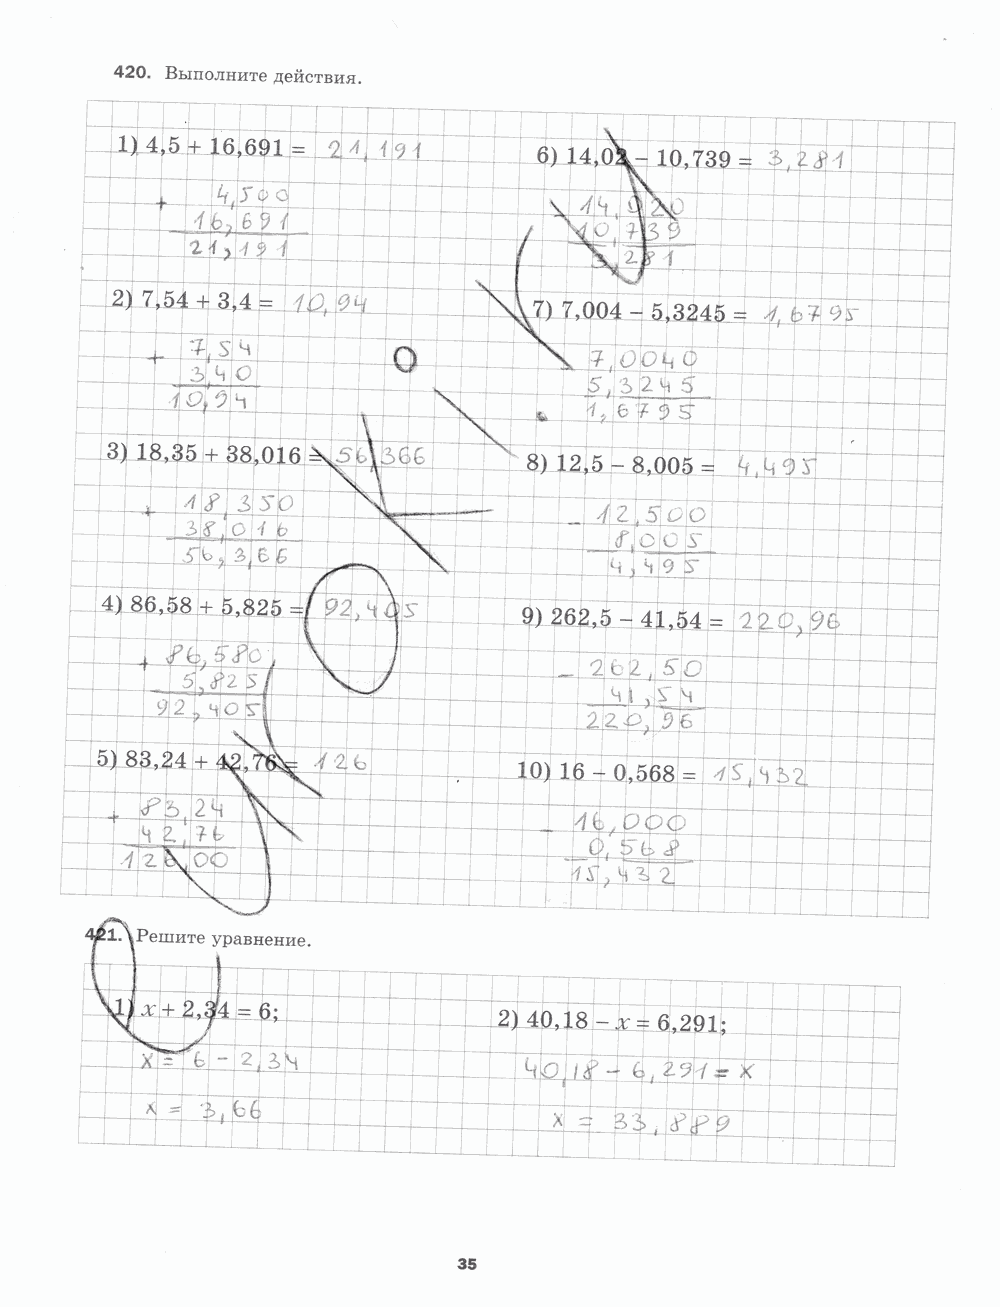 420. Выполните действия.
1) 4,5 + 16,691 = 21,191
+ 4,500
16,691
21,191
2) 7,54 + 3,4 = 10,94
+ 7,54
3,40
10,94
3) 18,35 + 38,016 = 56,366
+ 18,350
38,016
56,366
4) 86,58 + 5,825 = 92,405
+ 86,580
5,825
92,405
5) 83,24 + 42,76 = 126
+ 83,24
42,76
126,00
6) 14,02 − 10,739 = 3,281
− 14,020
10,739
3,281
7) 7,004 − 5,3245 = 1,6795
7,0040
5,3245
1,6795
8) 12,5 − 8,005 = 4,495
− 12,500
8,005
4,495
9) 262,5 − 41,54 = 220,96
− 262,50
41,54
220,96
10) 16 − 0,568 = 15,432
− 16,000
0,568
15,432
421. Решите уравнение.
1) x + 2,34 = 6;
x = 6 − 2,34
x = 3,66
2) 40,18 − x = 6,291;
40,18 − 6,291 = x
x = 33,889
35